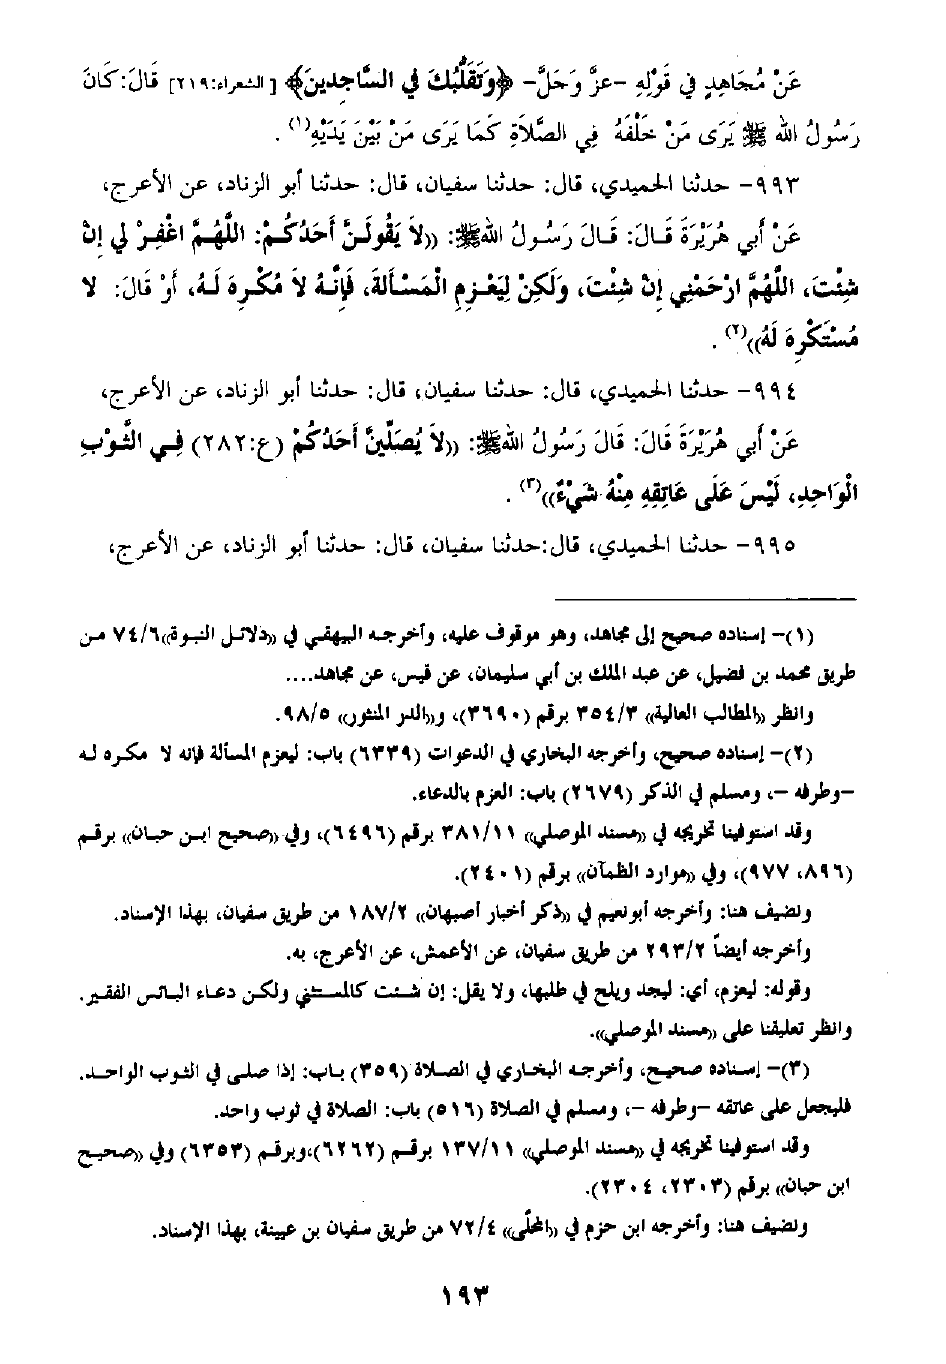 عَنْ مُجَاهِدٍ في قَوْلِهِ -عزَّ وَجَلَّ- ﴿وَتَقَلُّبَكَ في السَّاجِدينَ﴾ [الشعراء:٢١٩] قَالَ: كَانَ
رَسُولُ الله ﷺ يَرَى مَنْ خَلْفَهُ فِي الصَّلاَةِ كَمَا يَرَى مَنْ بَيْنَ يَدَيْهِ(١) .
٩٩٣- حدثنا الحميدي، قال: حدثنا سفيان، قال: حدثنا أبو الزناد، عن الأعرج،
عَنْ أَبي هُرَيْرَةَ قَالَ: قَالَ رَسُولُ اللهﷺ: ((لاَ يَقُولَنَّ أَحَدُكُمْ: اللَّهُمَّ اغْفِرْ لي إنْ
شِئْتَ، اللَّهُمَّ ارْحَمْنِي إنْ شِئْتَ، وَلَكِنْ لِيَعْزِمِ الْمَسْأَلَةَ، فَإنَّهُ لاَ مُكْرِهَ لَهُ، أَوْ قَالَ: لا
مُسْتَكْرِهَ لَهُ))(٢) .
٩٩٤- حدثنا الحميدي، قال: حدثنا سفيان، قال: حدثنا أبو الزناد، عن الأعرج،
عَنْ أَبي هُرَيْرَةَ قَالَ: قَالَ رَسُولُ اللهﷺ: ((لاَ يُصَلِّيَنَّ أَحَدُكُمْ (ع:٢٨٢) فِي الثَّوْبِ
الْوَاحِدِ، لَيْسَ عَلَى عَاتِقِهِ مِنْهُ شَيْءٌ))(٣) .
٩٩٥- حدثنا الحميدي، قال:حدثنا سفيان، قال: حدثنا أبو الزناد، عن الأعرج،
(١)- إسناده صحيح إلى مجاهد، وهو موقوف عليه، وأخرجه البيهقي في ((دلائل النبوة))٧٤/٦ من
طريق محمد بن فضيل، عن عبد الملك بن أبي سليمان، عن قيس، عن مجاهد....
وانظر ((المطالب العالية)) ٣٥٤/٣ برقم (٣٦٩٠)، و((الدر المنثور)) ٩٨/٥.
(٢)- إسناده صحيح، وأخرجه البخاري في الدعوات (٦٣٣٩) باب: ليعزم المسألة فإنه لا مكره له
-وطرفه -، ومسلم في الذكر (٢٦٧٩) باب: العزم بالدعاء.
وقد استوفينا تخريجه في ((مسند الموصلي)) ٣٨١/١١ برقم (٦٤٩٦)، وفي ((صحيح ابن حبان)) برقم
(٨٩٦، ٩٧٧)، وفي ((موارد الظمآن)) برقم (٢٤٠١).
ونضيف هنا: وأخرجه أبونعيم في ((ذكر أخبار أصبهان)) ١٨٧/٢ من طريق سفيان، بهذا الإسناد.
وأخرجه أيضاً ٢٩٣/٢ من طريق سفيان، عن الأعمش، عن الأعرج، به.
وقوله: ليعزم، أي: ليجد ويلح في طلبها، ولا يقل: إن شئت كالمستثني ولكن دعاء البائس الفقير.
وانظر تعليقنا على ((مسند الموصلي)).
(٣)- إسناده صحيح، وأخرجه البخاري في الصلاة (٣٥٩) باب: إذا صلى في الثوب الواحد.
فليجعل على عاتقه -وطرفه -، ومسلم في الصلاة (٥١٦) باب: الصلاة في ثوب واحد.
وقد استوفينا تخريجه في ((مسند الموصلي)) ١٣٧/١١ برقم (٦٢٦٢)،وبرقم (٦٣٥٣) وفي ((صحيح
ابن حبان)) برقم (٢٣٠٣، ٢٣٠٤).
ونضيف هنا: وأخرجه ابن حزم في ((المحلّى)) ٧٢/٤ من طريق سفيان بن عيينة، بهذا الإسناد.
١٩٣